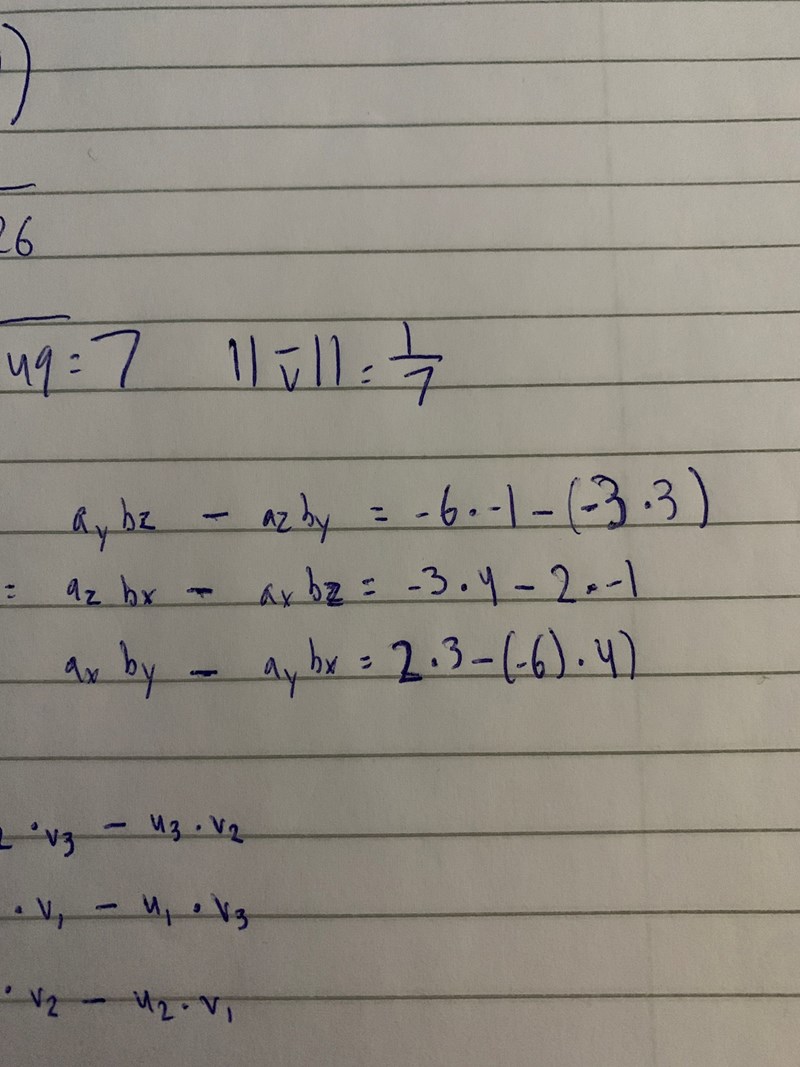 )
26
49 = 7 ||v̄|| = 1/7
aybz - azby = -6·-1-(-3·3)
= azbx - axbz = -3·4-2·-1
axby - aybx = 2·3-(-6)·4)
2·v3 - u3·v2
·v1 - u1·v3
·v2 - u2·v1